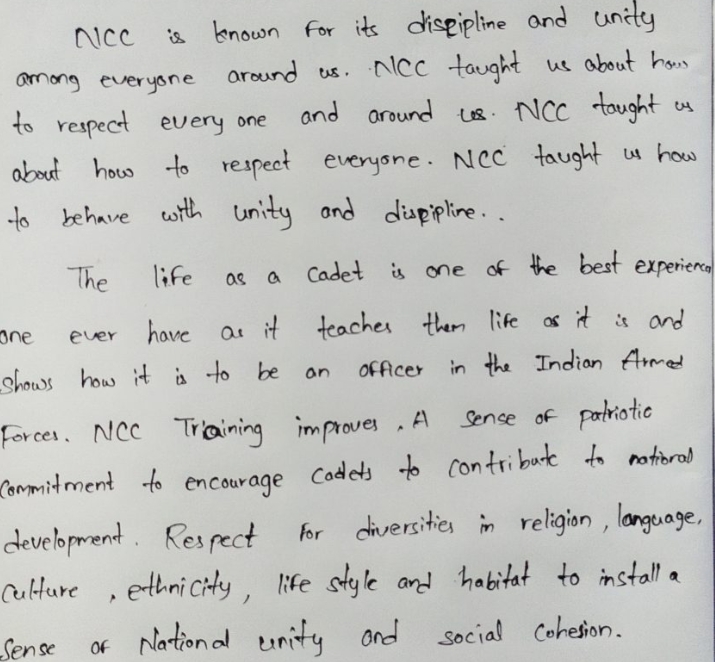 NCC is known for its discipline and unity
among everyone around us. NCC taught us about how
to respect every one and around us. NCC taught us
about how to respect everyone. NCC taught us how
to behave with unity and discipline..
The life as a cadet is one of the best experience
one ever have as it teaches them life as it is and
shows how it is to be an officer in the Indian Armed
Forces. NCC Training improves. A sense of patriotic
commitment to encourage cadets to contribute to national
development. Respect for diversities in religion, language,
culture, ethnicity, life style and habitat to install a
sense of National unity and social cohesion.